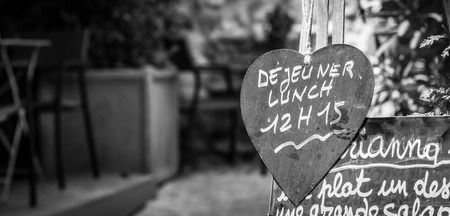 DÉJEUNER
LUNCH
12H15
rianna
plat un des
une grande salad